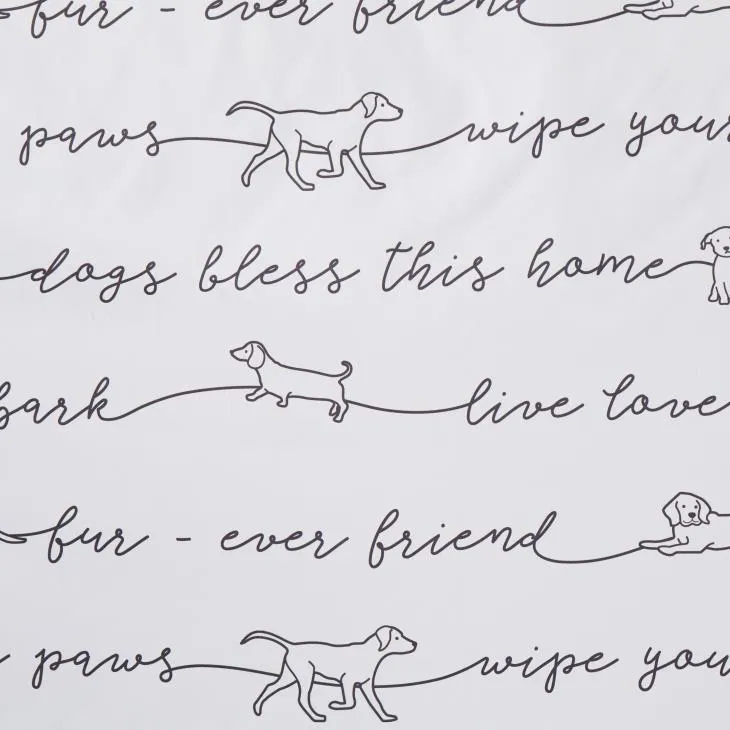 fur - ever friend
paws wipe your
dogs bless this home
bark live love
fur - ever friend
paws wipe you